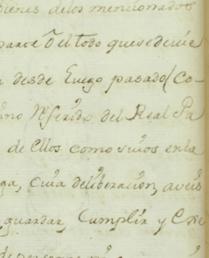 bienes delos mencionados
parte ô el todo que se devie
desde luego pasado/ Co
no Referido del Real Pa
de Ellos como suios en la
ga, cuia deliberacion, a veis
guardar, Cumplir y Exe
de